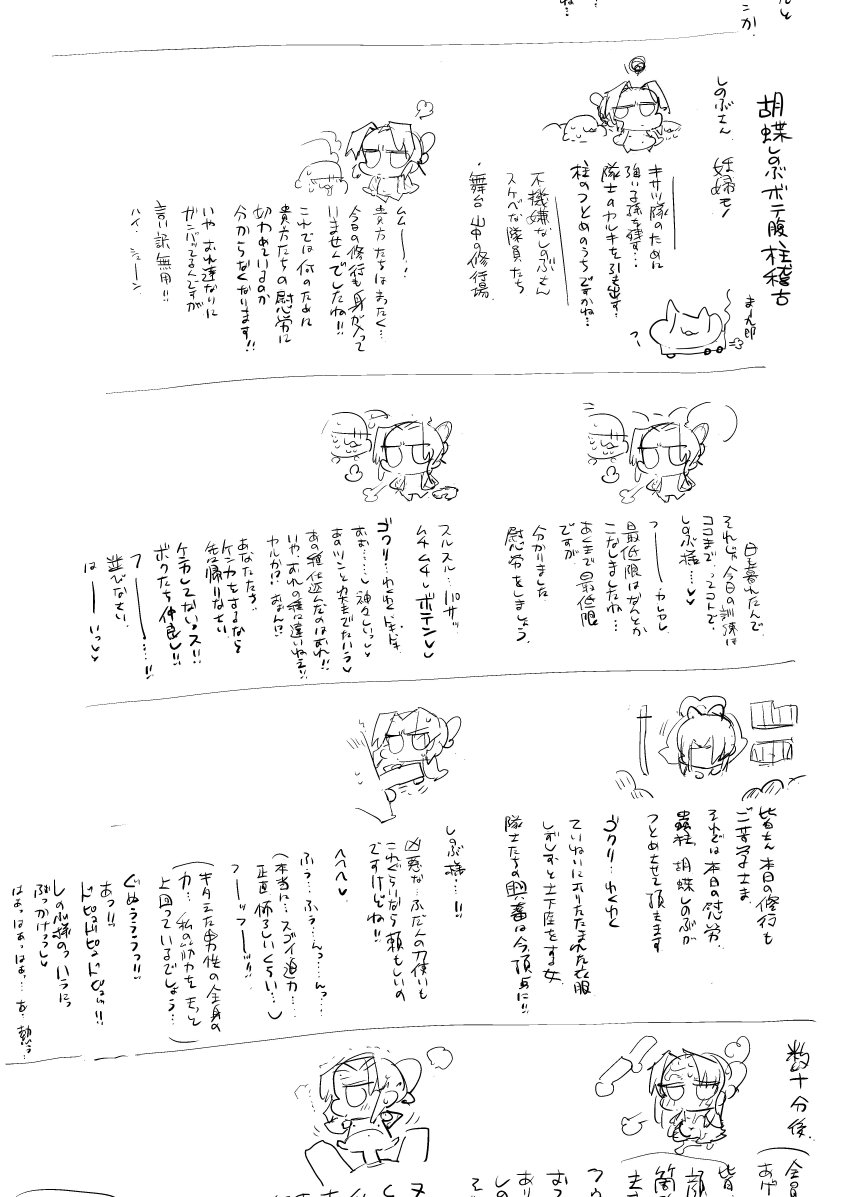 胡蝶しのぶボテ腹柱稽古
まん九郎
しのぶさん 妊婦モノ
キサツ隊のために
強い子孫を残す…
隊士のカルキを引き出す…
柱のつとめのうちですかね…
不機嫌なしのぶさん
スケベな隊員たち
・舞台 山中の修行場
ムムーー!
貴方たちはまったく…
今日の修行も身が入って
いませんでしたね!!
これでは何のために
貴方たちの慰労に
切わめているのか
分からなくなります!!
いや おれ達なりに
ガンバってるんですが
言い訳無用!!
ハイ シューン
日も暮れたんで
それじゃ今日の訓練は
ココまで…ってコトで、
しのぶ様…♥♥
フーーー カレカレ
最低限はなんとか
こなしましたね…
あくまで最低限
ですが
分かりました
慰労をしましょう
スルスル…パサッ
ムチムチ♥ボテン♥♥
ゴクリ…わくわく ドキドキ
おぉ……♥神々しいっ♥♥
あのツンと
あの種仕込んだのはおれ!!
いや、おれの種に違いねえ!!
ヤルか!? おぉん!?
あなたたち…
ケンカをするなら
先帰りなさい
ケンカしてないっス!!
ボクたち仲良し!!
フーーー…!!
並びなさい
はーーいっ♥♥
皆さん 本日の修行も
ご苦労さま
それでは本日の慰労、
蟲柱 胡蝶しのぶが
つとめさせて頂きます
ゴクリ…わくわく
ていねいにおりたたまれた衣服
しずしずと土下座をする女
隊士たちの興奮は今、頂点に!!
しのぶ様…!!
凶悪な…ふだんの刀使いも
これぐらいなら頼もしいの
ですけどね!!
へへへ♥
ふぅ…ふぅ…んっ…んっ…
(本当に…スゴイ迫力…
正直怖ろしいくらい…)
フーッフーッ!!
(キタエた男性の全身の
力… 私の筋力をもって
上回っているでしょう…)
ぐぬぅうううっ!!
あっ!!
ドピュドピュドピュッ!!
しのぶ様のっ
ぶっかけっっ♥
はぁっはぁっはぁっ… あ、熱っ…
数十分後